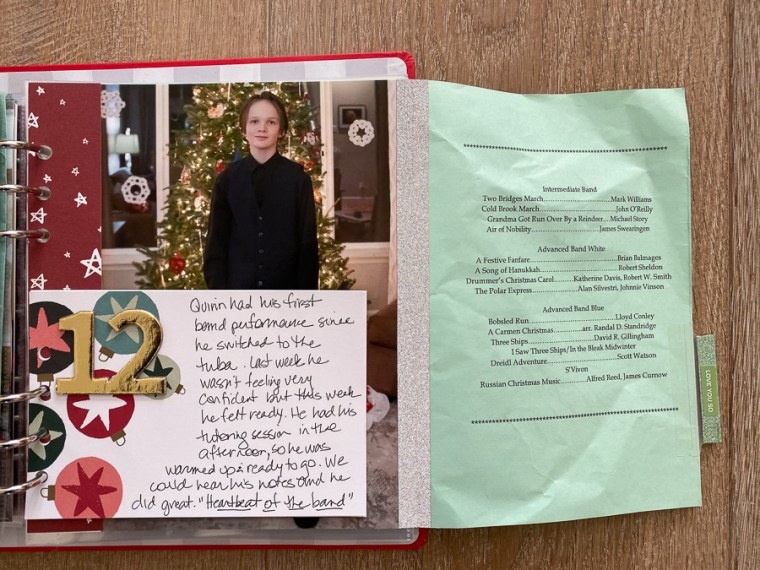 12
Quinn had his first
band performance since
he switched to the
tuba. Last week he
wasn't feeling very
confident but this week
he felt ready. He had his
tutoring session in the
afternoon, so he was
warmed up & ready to go. We
could hear his notes and he
did great. "Heartbeat of the band"
****************************************************
Intermediate Band
Two Bridges March..................Mark Williams
Cold Brook March....................John O'Reilly
Grandma Got Run Over By a Reindeer...Michael Story
Air of Nobility....................James Swearingen
Advanced Band White
A Festive Fanfare......................Brian Balmages
A Song of Hanukkah....................Robert Sheldon
Drummer's Christmas Carol.........Katherine Davis, Robert W. Smith
The Polar Express............Alan Silvestri, Johnnie Vinson
Advanced Band Blue
Bobsled Run......................Lloyd Conley
A Carmen Christmas............arr. Randal D. Standridge
Three Ships....................David R. Gillingham
I Saw Three Ships/In the Bleak Midwinter
Dreidl Adventure....................Scott Watson
S'Vivon
Russian Christmas Music.........Alfred Reed, James Curnow
****************************************************
LOVE YOU SO